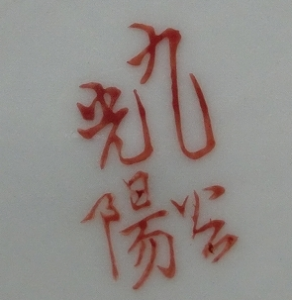 九谷
光陽